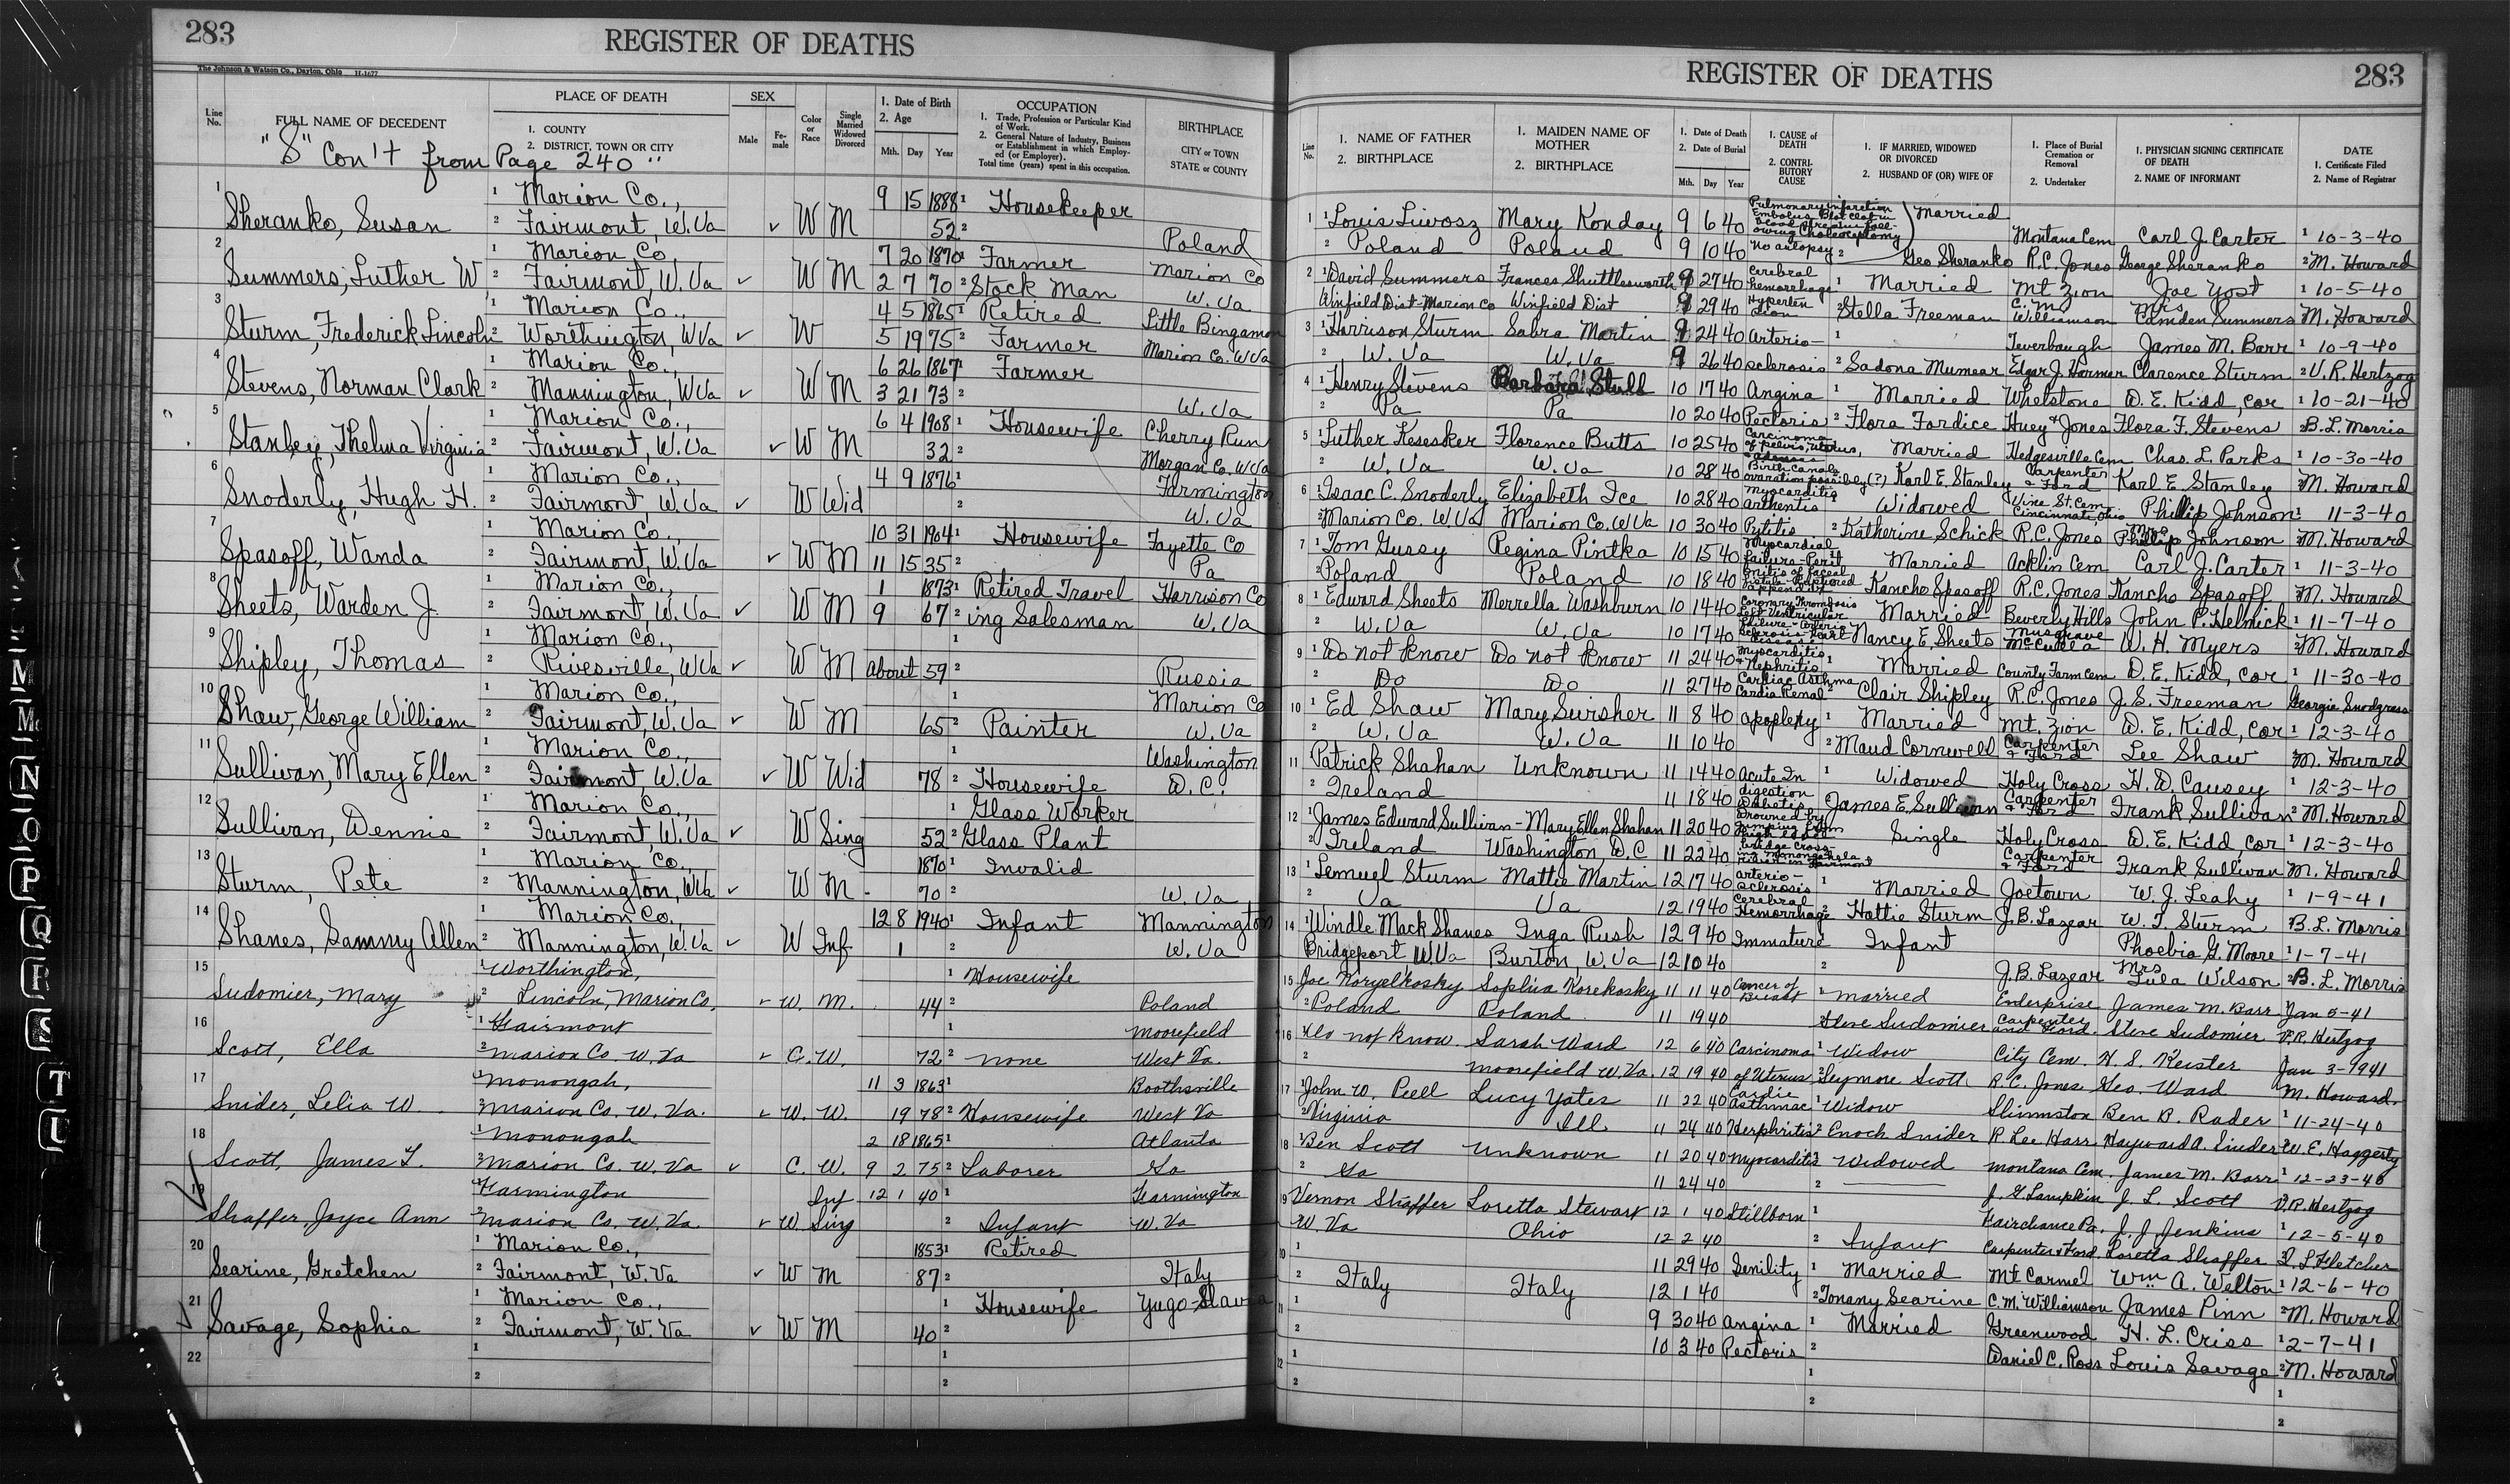 283
REGISTER OF DEATHS
The Johnson & Watson Co., Dayton, Ohio 11-1677
Line No.
FULL NAME OF DECEDENT
PLACE OF DEATH
1. COUNTY
2. DISTRICT, TOWN OR CITY
SEX
Male
Female
Color or Race
Single Married Widowed Divorced
1. Date of Birth
2. Age
Mth. Day Year
OCCUPATION
1. Trade, Profession or Particular Kind of Work.
2. General Nature of Industry, Business or Establishment in which Employed (or Employer).
Total time (years) spent in this occupation.
BIRTHPLACE
CITY or TOWN
STATE or COUNTY
"S" Con't from Page 240"
1 Marion Co., 9 15 1888 1 Housekeeper
Sheranko, Susan 2 Fairmont, W.Va ✓ W M 52 2 Poland
2 1 Marion Co. 7 20 1870 1 Farmer Marion Co
Summers, Luther W 2 Fairmont, W.Va ✓ W M 2 7 70 2 Stock Man W.Va
3 1 Marion Co., 4 5 1865 1 Retired Little Bingamon
Sturm, Frederick Lincoln 2 Worthington, W Va ✓ W 5 19 75 2 Farmer Marion Co. W Va
4 1 Marion Co., 6 26 1867 1 Farmer
Stevens, Norman Clark 2 Mannington, W Va ✓ W M 3 21 73 2 W.Va
5 1 Marion Co., 6 4 1908 1 Housewife Cherry Run
Stanley, Thelma Virginia 2 Fairmont, W.Va ✓ W M 32 2 Morgan Co. W Va
6 1 Marion Co., 4 9 1876 1 Farmington
Snoderly, Hugh H. 2 Fairmont, W.Va ✓ W Wid 2 W.Va
7 1 Marion Co., 10 31 1904 1 Housewife Fayette Co
Spasoff, Wanda 2 Fairmont, W.Va ✓ W M 11 15 35 2 Pa
8 1 Marion Co., 1 1873 1 Retired Travel Harrison Co
Sheets, Warden J. 2 Fairmont, W.Va ✓ W M 9 67 2 ing Salesman W.Va
9 1 Marion Co., 1
Shipley, Thomas 2 Rivesville, W Va ✓ W M about 59 2 Russia
10 1 Marion Co., 1 Marion Co
Shaw, George William 2 Fairmont, W.Va ✓ W M 65 2 Painter W.Va
11 1 Marion Co., 1 Washington
Sullivan, Mary Ellen 2 Fairmont, W.Va ✓ W Wid 78 2 Housewife D.C.
12 1 Marion Co., 1 Glass Worker
Sullivan, Dennis 2 Fairmont, W.Va ✓ W Sing 52 2 Glass Plant
13 1 Marion Co., 1870 1 Invalid
Sturm, Pete 2 Mannington, W Va ✓ W M - 70 2 W.Va
14 1 Marion Co., 12 8 1940 1 Infant Mannington
Shanes, Sammy Allen 2 Mannington, W.Va ✓ W Inf. 1 2 W.Va
15 1 Worthington, 1 Housewife
Sudomier, Mary 2 Lincoln, Marion Co. ✓ W. M. 44 2 Poland
16 1 Fairmont 1 Moorefield
Scott, Ella 2 Marion Co. W. Va ✓ C. W. 72 2 none West Va.
17 1 Monongah, 11 3 1863 1 Boothsville
Snider, Lelia W. 2 Marion Co. W. Va. ✓ W. W. 19 78 2 Housewife West Va
18 1 Monongah 2 18 1865 1 Atlanta
Scott, James T. 2 Marion Co. W. Va ✓ C. W. 9 2 75 2 Laborer Ga
19 1 Farmington Inf 12 1 40 1 Farmington
Shaffer, Joyce Ann 2 Marion Co. W. Va. ✓ W. Sing 2 Infant W. Va
20 1 Marion Co., 1853 1 Retired
Searine, Gretchen 2 Fairmont, W. Va ✓ W M 87 2 Italy
21 1 Marion Co., 1 Housewife Yugo-Slavia
Savage, Sophia 2 Fairmont, W. Va ✓ W M 40 2
22 1 1
2 2
REGISTER OF DEATHS
283
Line No.
1. NAME OF FATHER
2. BIRTHPLACE
1. MAIDEN NAME OF MOTHER
2. BIRTHPLACE
1. Date of Death
2. Date of Burial
Mth. Day Year
1. CAUSE of DEATH
2. CONTRIBUTORY CAUSE
1. IF MARRIED, WIDOWED OR DIVORCED
2. HUSBAND OF (OR) WIFE OF
1. Place of Burial Cremation or Removal
2. Undertaker
1. PHYSICIAN SIGNING CERTIFICATE OF DEATH
2. NAME OF INFORMANT
DATE
1. Certificate Filed
2. Name of Registrar
1 1 Louis Livosz Mary Konday 9 6 40 Pulmonary infarction Embolus Blot clot in blood stream following Married Montana Cem Carl J. Carter 1 10-3-40
2 Poland Poland 9 10 40 No autopsy 2 Geo Sheranko R.C. Jones George Sheranko 2 M. Howard
2 1 David Summers Frances Shuttlesworth 9 27 40 Cerebral hemorrhage 1 Married Mt Zion Joe Yost 1 10-5-40
Winfield Dist-Marion Co Winfield Dist 9 29 40 Hyperten sion 2 Stella Freeman C. M. Williamson Mrs Camden Summers M. Howard
3 1 Harrison Sturm Sabra Martin 9 24 40 Arterio- 1 Teverbaugh James M. Barr 1 10-9-40
2 W.Va W.Va 9 26 40 sclerosis 2 Sadona Mumear Edgar J. Harmer Clarence Sturm 2 V. R. Hertzog
4 1 Henry Stevens Barbara Stull 10 17 40 Angina 1 Married Whetstone D. E. Kidd, cor 1 10-21-40
2 Pa Pa 10 20 40 Pectoris 2 Flora Fordice Huey & Jones Flora F. Stevens 2 B. L. Morris
5 1 Luther Kesesker Florence Butts 10 25 40 Carcinoma of pelvis, uterus, Married Hedgesville Cem Chas. L. Parks 1 10-30-40
2 W.Va W.Va 10 28 40 Birth canal, ovarian possibley (?) Karl E. Stanley Carpenter & Ford Karl E. Stanley 2 M. Howard
6 1 Isaac C. Snoderly Elizabeth Ice 10 28 40 Myocarditis Arthentis 1 Widowed Vine St. Cem Cincinnati, Ohio Phillip Johnson 1 11-3-40
2 Marion Co. W.Va Marion Co. W Va 10 30 40 2 Katherine Schick R.C. Jones Mrs Phillip Johnson 2 M. Howard
7 1 Tom Gussy Regina Pintka 10 15 40 Myocardial failure - Perit Married Acklin Cem Carl J. Carter 1 11-3-40
2 Poland Poland 10 18 40 onitis of faecal fistula-Ruptured appendix Kancho Spasoff R.C. Jones Kancho Spasoff 2 M. Howard
8 1 Edward Sheets Merrella Washburn 10 14 40 Coronary Thrombosis Left Ventricular Married Beverly Hills John P. Helmick 1 11-7-40
2 W.Va W.Va 10 17 40 failure - Arterio sclerosis heart disease Nancy E. Sheets Musgrave McCulla W. H. Myers 2 M. Howard
9 1 Do not Know Do not Know 11 24 40 Myocarditis & Nephritis 1 Married County Farm Cem D. E. Kidd, cor 1 11-30-40
2 Do Do 11 27 40 Cardiac Asthma Cardia Renal 2 Clair Shipley R.C. Jones J. S. Freeman Georgia Snodgrass
10 1 Ed Shaw Mary Swisher 11 8 40 apoplexy 1 Married Mt. Zion D. E. Kidd, cor 1 12-3-40
2 W. Va W. Va 11 10 40 2 Maud Cornwell Carpenter & Ford Lee Shaw M. Howard
11 1 Patrick Shahan Unknown 11 14 40 Acute In 1 Widowed Holy Cross H. D. Causey 1 12-3-40
2 Ireland 11 18 40 digestion Diabetis James E. Sullivan Carpenter & Ford Frank Sullivan 2 M. Howard
12 1 James Edward Sullivan - Mary Ellen Shahan 11 20 40 Drowned by jumping from high level Single Holy Cross D. E. Kidd, cor 1 12-3-40
2 Ireland Washington, D.C 11 22 40 bridge crossing Monongahela river in Fairmont Carpenter & Ford Frank Sullivan M. Howard
13 1 Lemuel Sturm Mattie Martin 12 17 40 arterio- sclerosis 1 Married Joetown W. J. Leahy 1 1-9-41
2 Va Va 12 19 40 Cerebral Hemorrhage 2 Hattie Sturm J.B. Lazear W. T. Sturm B. L. Morris
14 1 Windle Mack Shanes Inga Rush 12 9 40 Immature 1 Infant Phoebia G. Moore 1 1-7-41
Bridgeport W.Va Burton, W. Va 12 10 40 2 J.B. Lazear Mrs Lula Wilson 2 B. L. Morris
15 Joe Noryelkosky Sophia Korekosky 11 11 40 Cancer of Breast 1 married Enterprise James M. Barr Jan 5-41
2 Poland Poland 11 19 40 Steve Sudomier Carpenter and Ford. Steve Sudomier V. R. Hertzog
16 1 Do not know. Sarah Ward 12 6 40 Carcinoma 1 Widow City Cem. H. S. Keister Jan 3-1941
2 Moorefield W. Va. 12 19 40 of Uterus 2 Seymore Scott R. C. Jones Geo. Ward M. Howard.
17 1 John W. Peell Lucy Yates 11 22 40 Cardic Asthmac 1 Widow Shinnston Ben B. Rader 1 11-24-40
2 Virginia Ill. 11 24 40 Nerphritis 2 Enoch Snider R Lee Harr Hayward A. Snider W. E. Haggerty
18 1 Ben Scott Unknown 11 20 40 Myocarditis 1 Widowed Montana Cem. James M. Barr 1 12-23-40
2 Ga 11 24 40 2 J. G. Lampkin J. L. Scott V. R. Hertzog
19 Vernon Shaffer Loretta Stewart 12 1 40 Stillborn 1 Fairchance Pa. J. J. Jenkins 1 12-5-40
W. Va Ohio 12 2 40 2 Infant Carpenter & Ford. Loretta Shaffer D. L. Fletcher
1 11 29 40 Senility 1 Married Mt Carmel Wm A. Welton 1 12-6-40
2 Italy Italy 12 1 40 2 Tonany Searine C. M. Williamson James Pinn 2 M. Howard
1 9 30 40 Angina 1 Married Greenwood H. L. Criss 1 2-7-41
2 10 3 40 Pectoris 2 Daniel C. Ross Louis Savage 2 M. Howard
1 1 1
2 2 2
M N O P Q R S T U